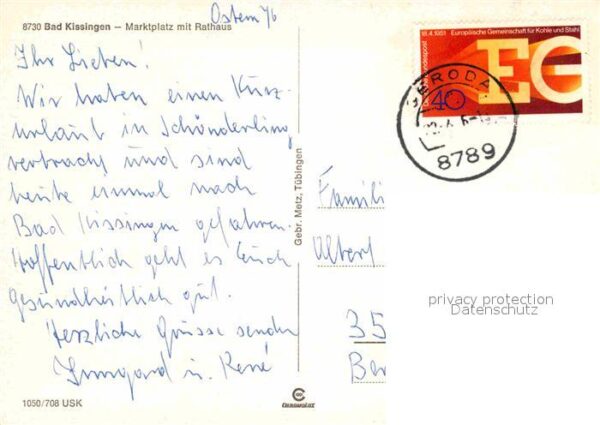 Ostern 76
8730 Bad Kissingen — Marktplatz mit Rathaus
Ihr Lieben!
Wir haben einen Kurz-
urlaub in Schönderling
verbracht und sind
heute einmal nach
Bad Kissingen gefahren.
Hoffentlich geht es Euch
gesundheitlich gut.
Herzliche Grüsse senden
Irmgard u. René
1050/708 USK
Gebr. Metz, Tübingen
18.4.1951 · Europäische Gemeinschaft für Kohle und Stahl
Deutsche Bundespost
40
EG
GERODA
8789
Famili
Albert
35
privacy protection
Datenschutz